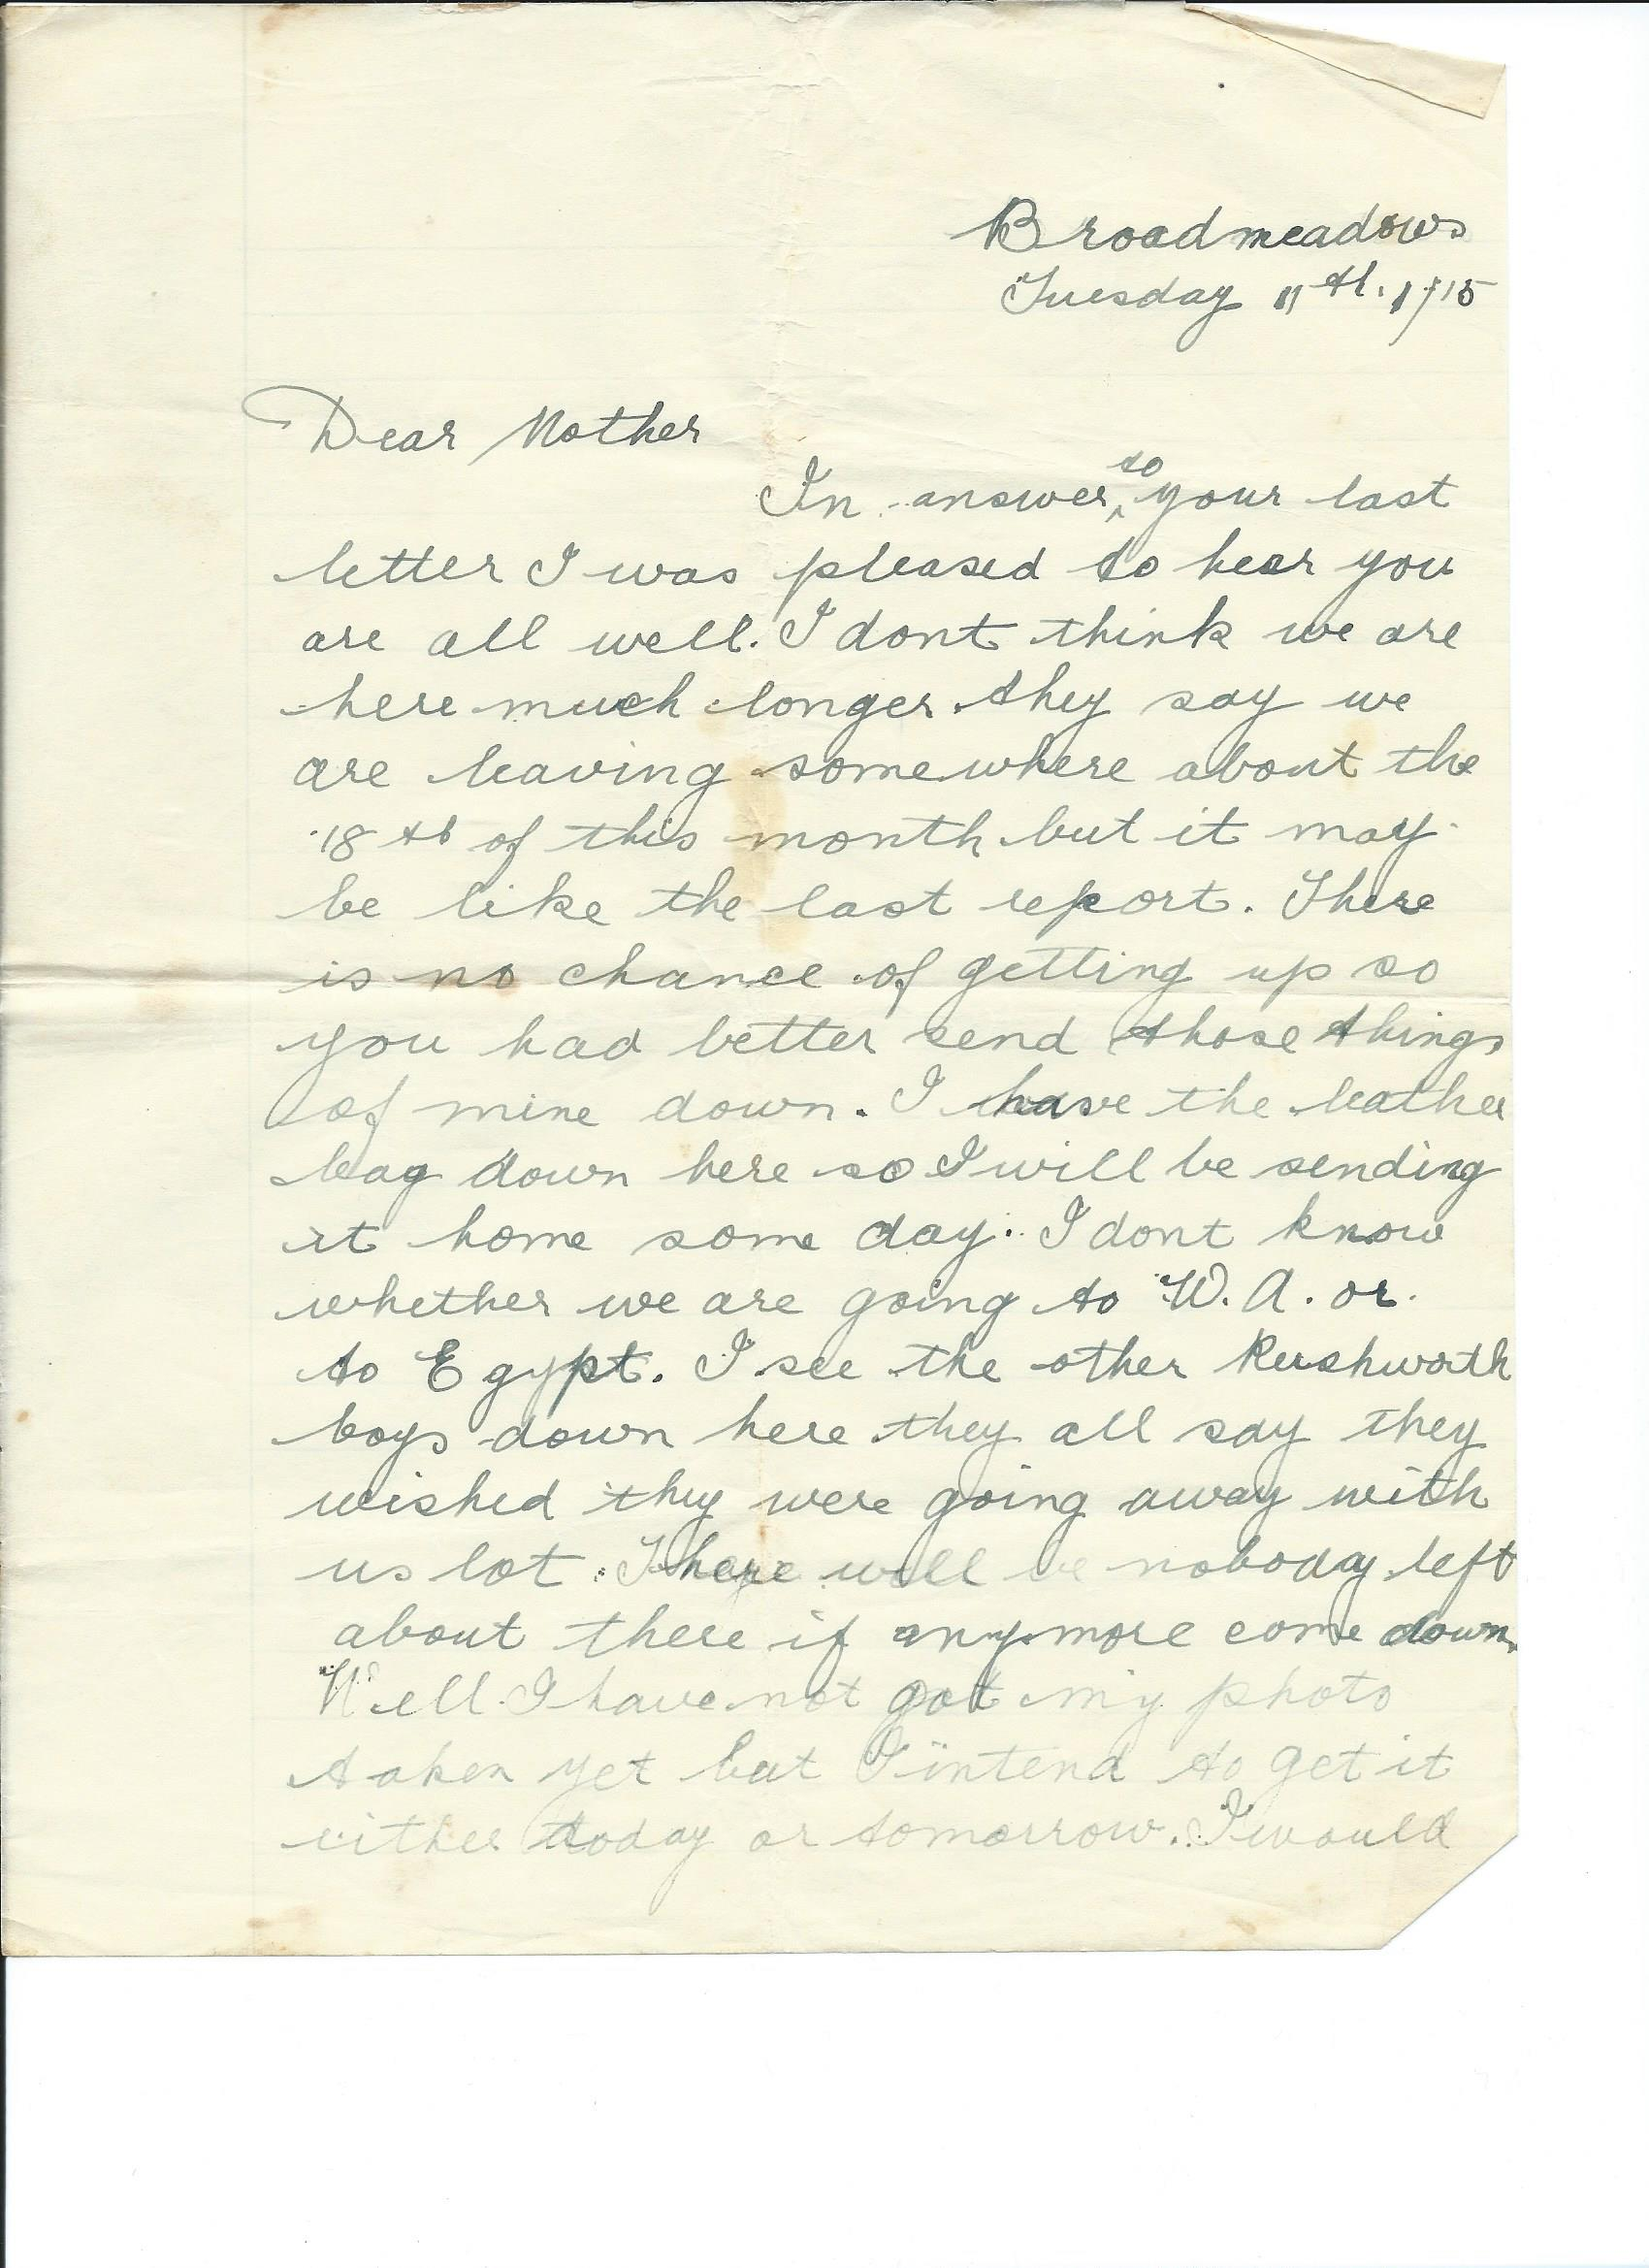 Broadmeadows
Tuesday 11th. 1915
Dear Mother
In answer to your last
letter I was pleased to hear you
are all well. I dont think we are
here much longer they say we
are leaving somewhere about the
18th of this month but it may
be like the last report. There
is no chance of getting up so
you had better send those things
of mine down. I have the leather
bag down here so I will be sending
it home some day. I dont know
whether we are going to W. A. or
to Egypt. I see the other Rushworth
boys down here they all say they
wished they were going away with
us lot. There will be nobody left
about there if anymore come down.
Well I have not got my photo
taken yet but I intend to get it
either today or tomorrow. I would